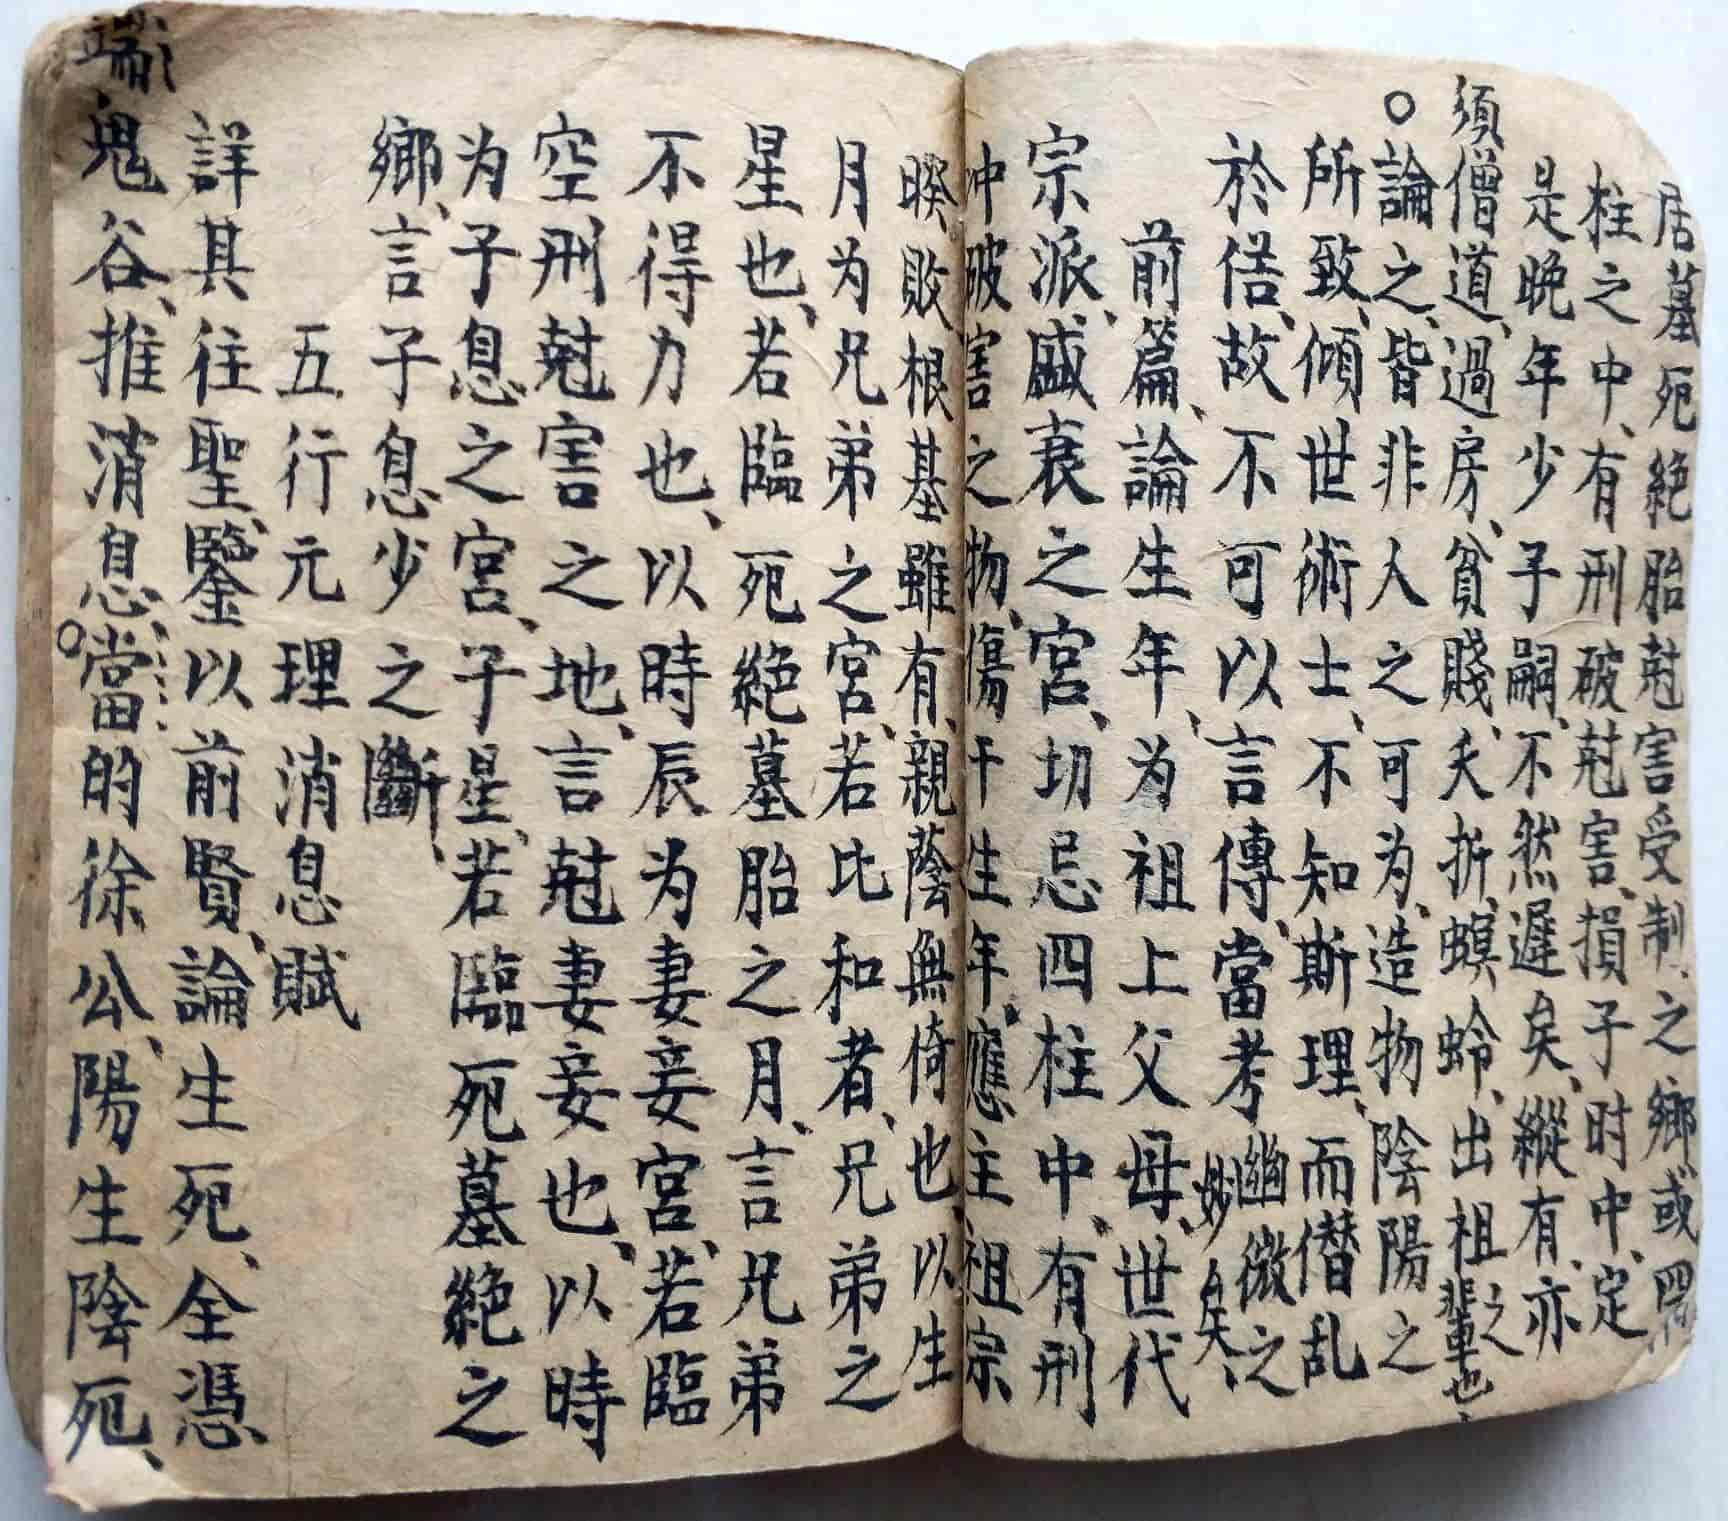 居墓死絶胎尅害受制、之鄉或四
柱之中、有刑破尅害、損子时中、定
是晚年少子嗣、不然遲矣、縱有、亦
須僧道、過房、貧賤、夭折、螟蛉、出祖之輩也、
○論之、皆非人之可为、造物陰陽之
所致、傾世術士、不知斯理、而僣乱
於㑢、故不可以言傳、當考幽微之妙矣、
前篇、論生年、为祖上父母、世代
宗派、盛衰之宮、切忌四柱中、有刑
冲破害之物、傷干生年、應主祖宗
睽、敗根基雖有、親蔭無倚也、以生
月为兄弟之宮、若比和者、兄弟之
星也、若臨死絶墓胎之月、言兄弟
不得力也、以時辰为妻妾宮、若臨
空刑尅害之地、言尅妻妾也、以時
为子息之宮、子星、若臨死墓絶之
鄉、言子息少之斷、
五行元理消息賦
詳其往聖、鑒以前賢、論生死、全憑
鬼谷、推消息、當的徐公、陽生陰死、
端